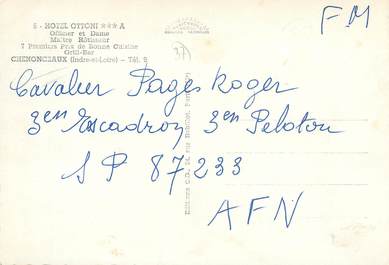 6 - HOTEL OTTONI *** A
Officier et Dame
Maître Rôtisseur
7 Premiers Prix de Bonne Cuisine
Grill-Bar
CHENONCEAUX (Indre-et-Loire) - Tél. 9
FM
37
Cavalier Pages Roger
3en Escadron 3en Peloton
SP 87233
AFN